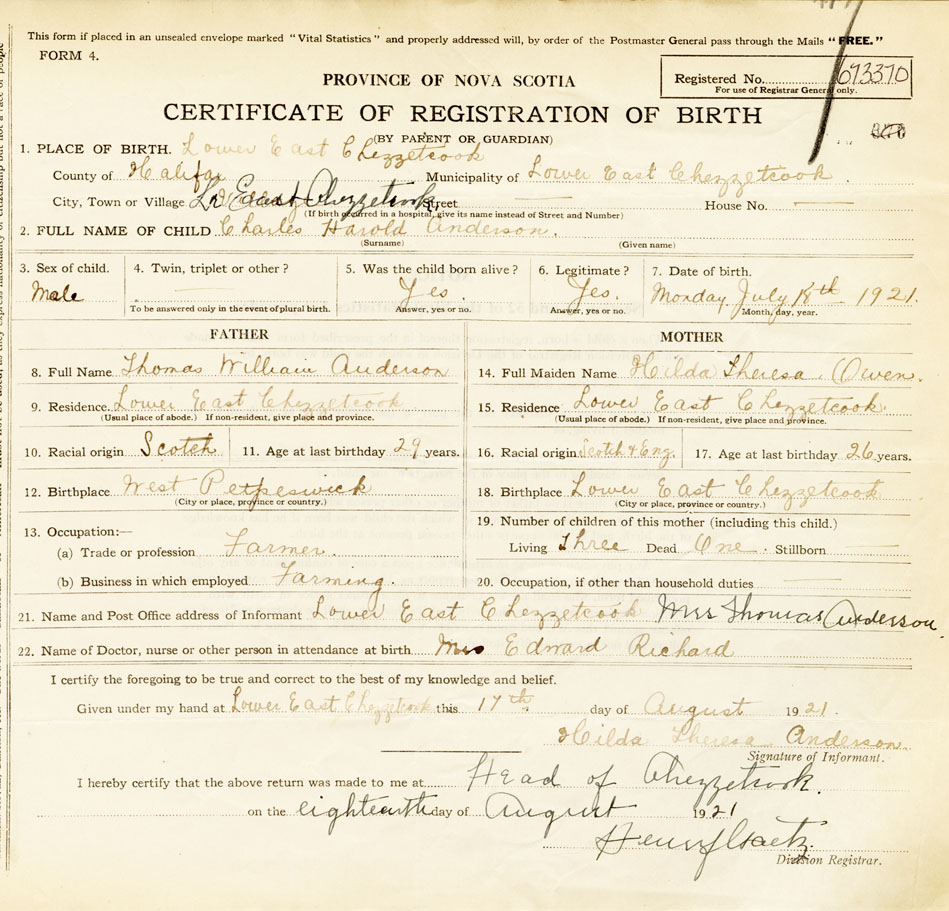 This form if placed in an unsealed envelope marked "Vital Statistics" and properly addressed will, by order of the Postmaster General pass through the Mails "FREE."
FORM 4.
PROVINCE OF NOVA SCOTIA
Registered No. 673370
For use of Registrar General only.
CERTIFICATE OF REGISTRATION OF BIRTH
(BY PARENT OR GUARDIAN)
1. PLACE OF BIRTH. Lower East Chezzetcook
County of Halifax Municipality of Lower East Chezzetcook
City, Town or Village East Chezzetcook Street House No.
(If birth occurred in a hospital, give its name instead of Street and Number)
2. FULL NAME OF CHILD Charles Harold Anderson.
(Surname) (Given name)
3. Sex of child. 4. Twin, triplet or other? 5. Was the child born alive? 6. Legitimate? 7. Date of birth.
Male Yes. Yes. Monday July 18th 1921.
To be answered only in the event of plural birth. Answer, yes or no. Answer, yes or no. Month, day, year.
FATHER MOTHER
8. Full Name Thomas William Anderson 14. Full Maiden Name Hilda Theresa (Owen.
9. Residence. Lower East Chezzetcook 15. Residence Lower East Chezzetcook.
(Usual place of abode.) If non-resident, give place and province. (Usual place of abode.) If non-resident, give place and province.
10. Racial origin Scotch 11. Age at last birthday 29 years. 16. Racial origin Scotch & Eng. 17. Age at last birthday 26 years.
12. Birthplace West Petpeswick 18. Birthplace Lower East Chezzetcook.
(City or place, province or country.) (City or place, province or country.)
13. Occupation:— 19. Number of children of this mother (including this child.)
(a) Trade or profession Farmer. Living Three Dead One. Stillborn
(b) Business in which employed Farming. 20. Occupation, if other than household duties
21. Name and Post Office address of Informant Lower East Chezzetcook Mrs Thomas Anderson.
22. Name of Doctor, nurse or other person in attendance at birth Mrs Edward Richard
I certify the foregoing to be true and correct to the best of my knowledge and belief.
Given under my hand at Lower East Chezzetcook this 17th day of August 1921.
Hilda Theresa Anderson.
Signature of Informant.
I hereby certify that the above return was made to me at Head of Chezzetcook.
on the eighteenth day of August 1921
Henry Gaetz
Division Registrar.